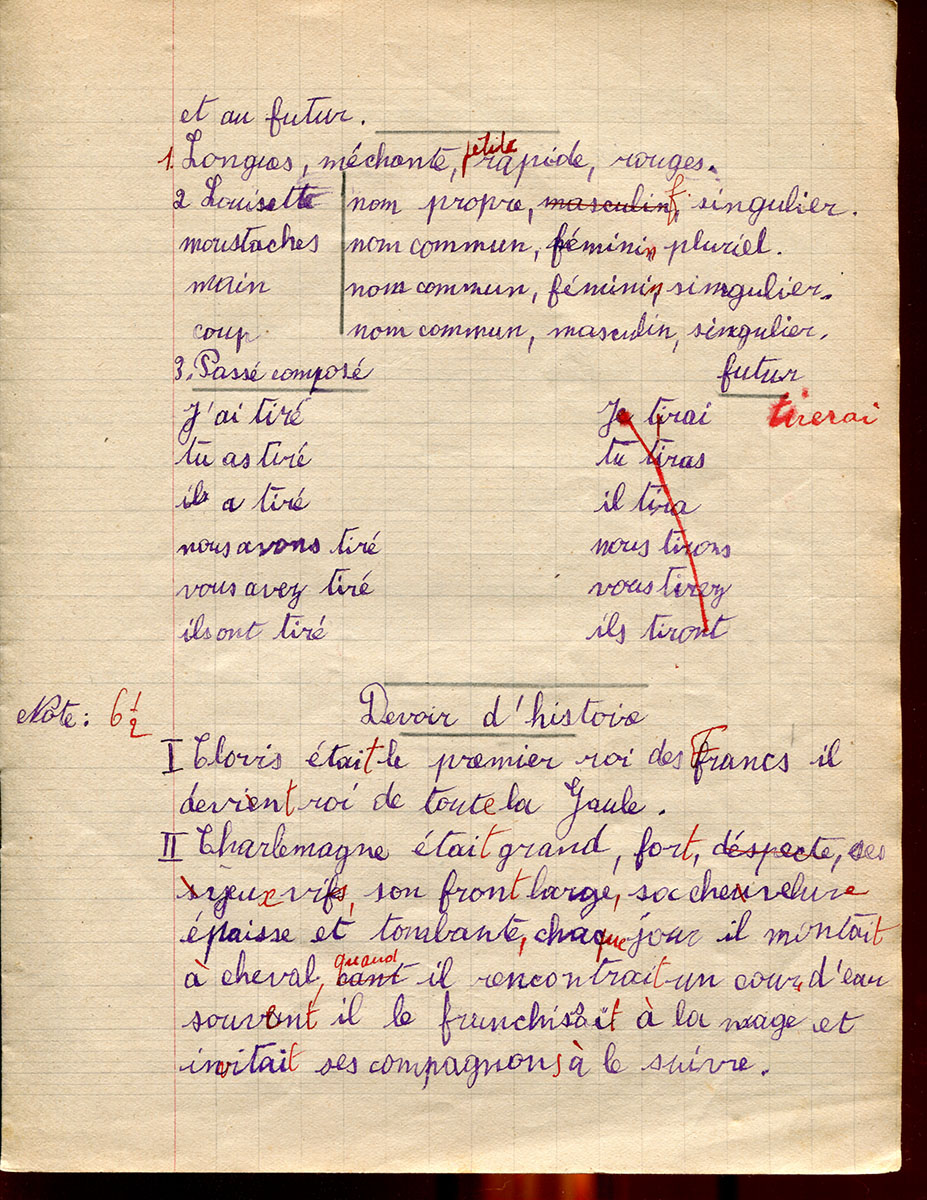 et au futur.
petite
1. Longues, méchante, rapide, rouges.
2 Louisette nom propre, masculin f, singulier.
moustaches nom commun, féminin, pluriel.
main nom commun, féminin, singulier.
coup nom commun, masculin, singulier.
3. Passé composé futur
J'ai tiré Je tirai tirerai
tu as tiré tu tiras
il a tiré il tira
nous avons tiré nous tirons
vous avez tiré vous tirez
ils ont tiré ils tiront
Note : 6 1/2 Devoir d'histoire
I Clovis était le premier roi des Francs il
devient roi de toute la Gaule.
II Charlemagne était grand, fort, déspecte, ses
yeux vifs, son front large, sa chevelure
épaisse et tombante, chaque jour il montait
quand
à cheval, cant il rencontrait un cour, d'eau
souvent il le franchissait à la nage et
invitait ses compagnons à le suivre.